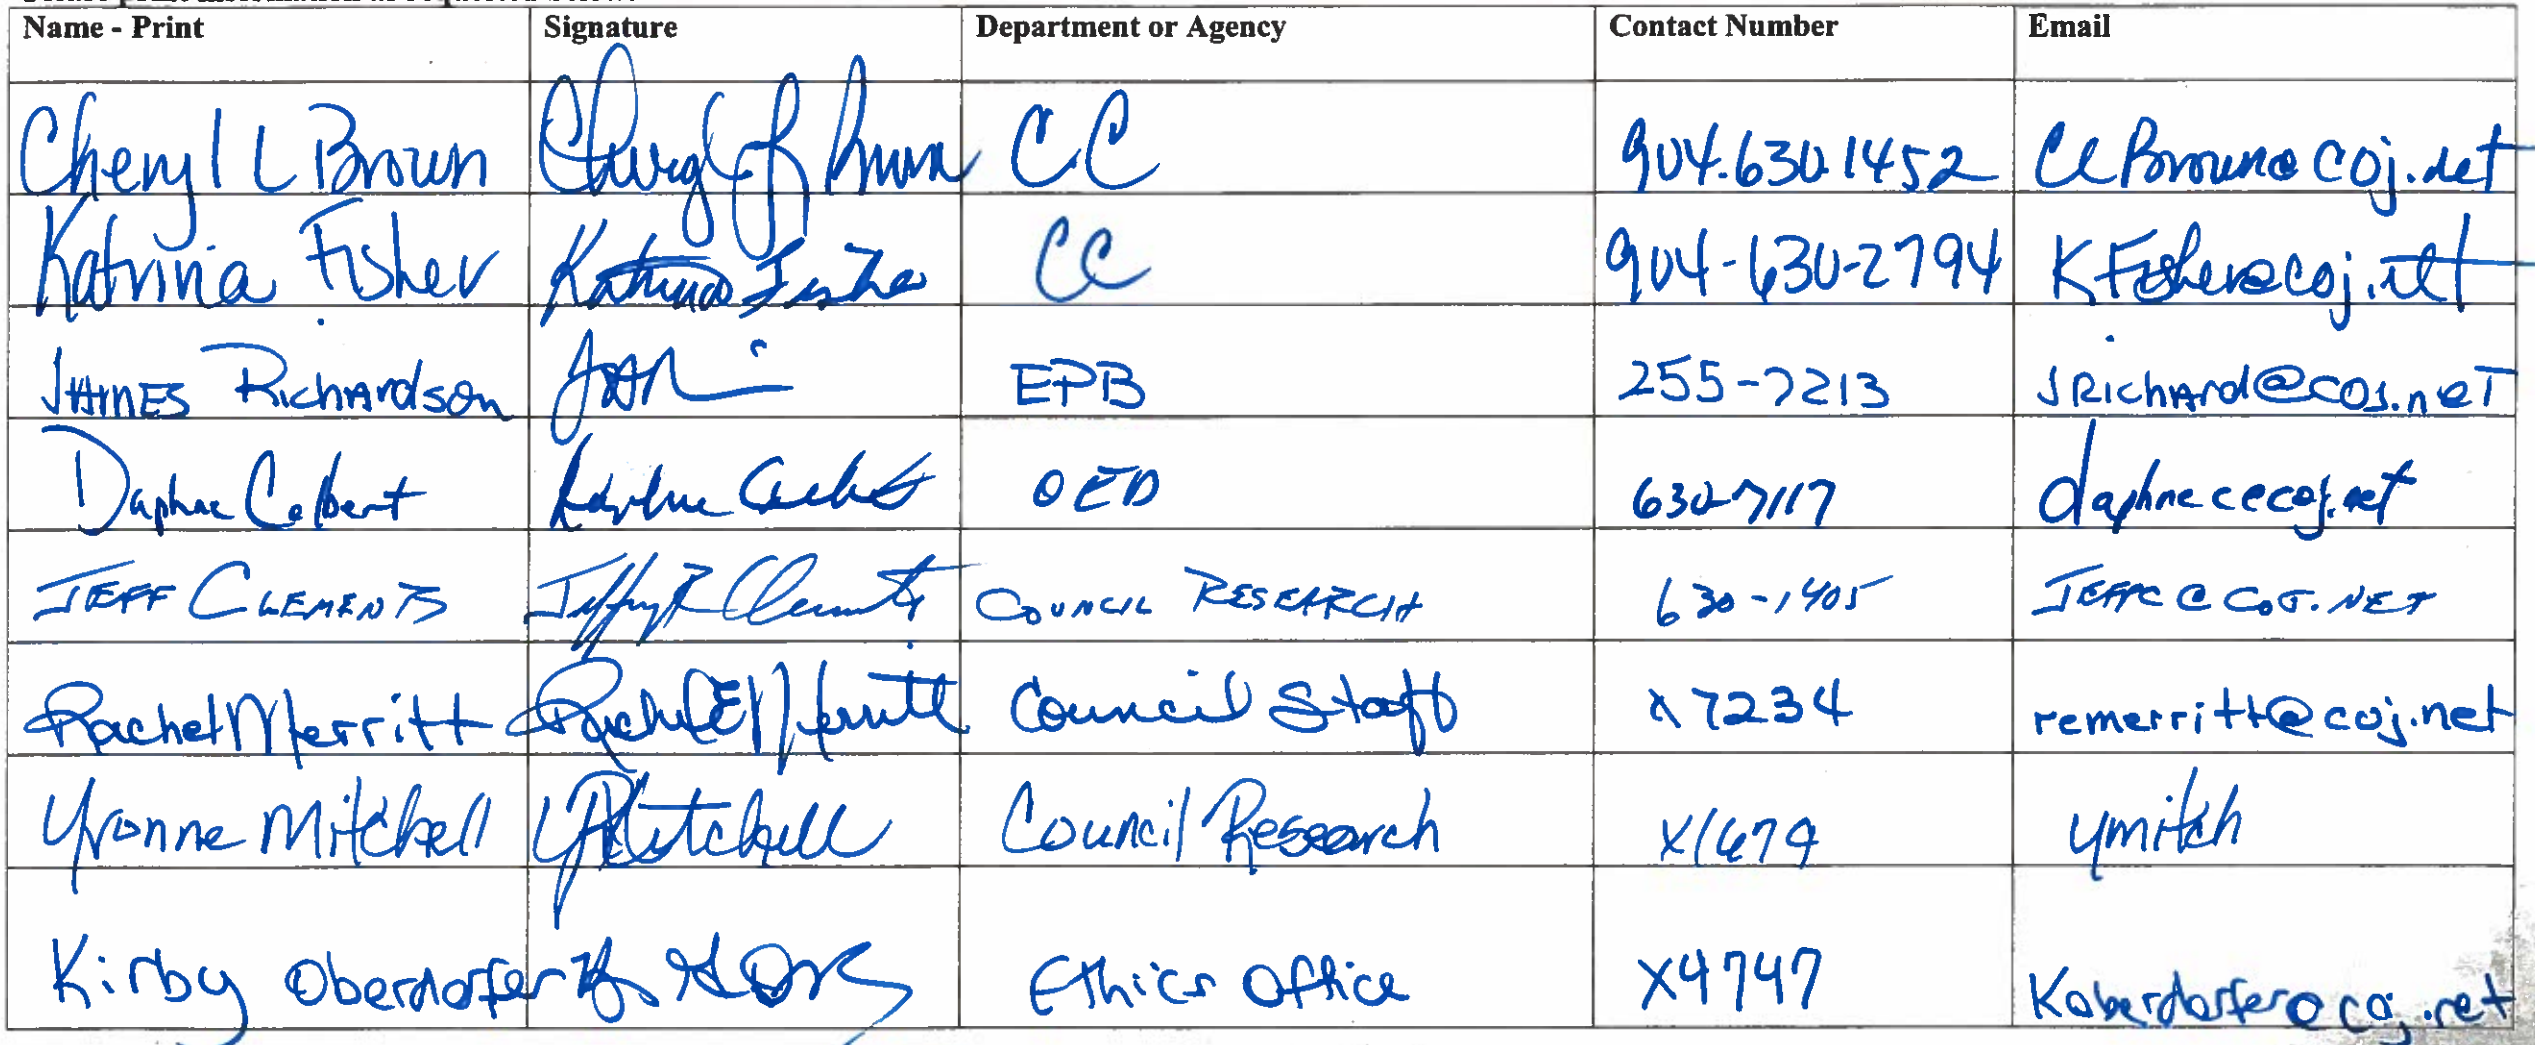 Name - Print Signature Department or Agency Contact Number Email
Cheryl L Brown Cheryl L Brown CC 904.630.1452 CLBrown@coj.net
Katrina Fisher Katrina Fisher CC 904-630-2794 KFisher@coj.net
JAMES Richardson EPB 255-7213 JRichard@coj.neT
Daphne Colbert Daphne Colbert OED 630-7117 daphnec@coj.net
JEFF CLEMENTS Jeffrey R Clements COUNCIL RESEARCH 630-1405 JEFFC@COJ.NET
Rachel Merritt Rachel E Merritt Council Staff x7234 remerritt@coj.net
Yvonne Mitchell YPMitchell Council Research x1679 ymitch
Kirby Oberdorfer Ethics Office x4747 Koberdorfer@coj.net